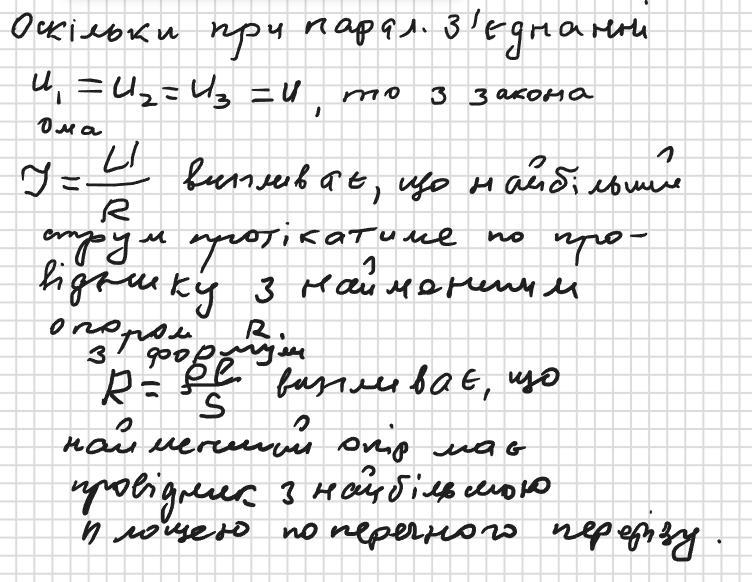 Оскільки при парал. з'єднанні
U₁ = U₂ = U₃ = U, то з закона
Ома
I = U/R випливає, що найбільший
струм протікатиме по про-
віднику з найменшим
опором R.
З формули
R = ρl/S випливає, що
найменший опір має
провідник з найбільшою
площею поперечного перерізу.